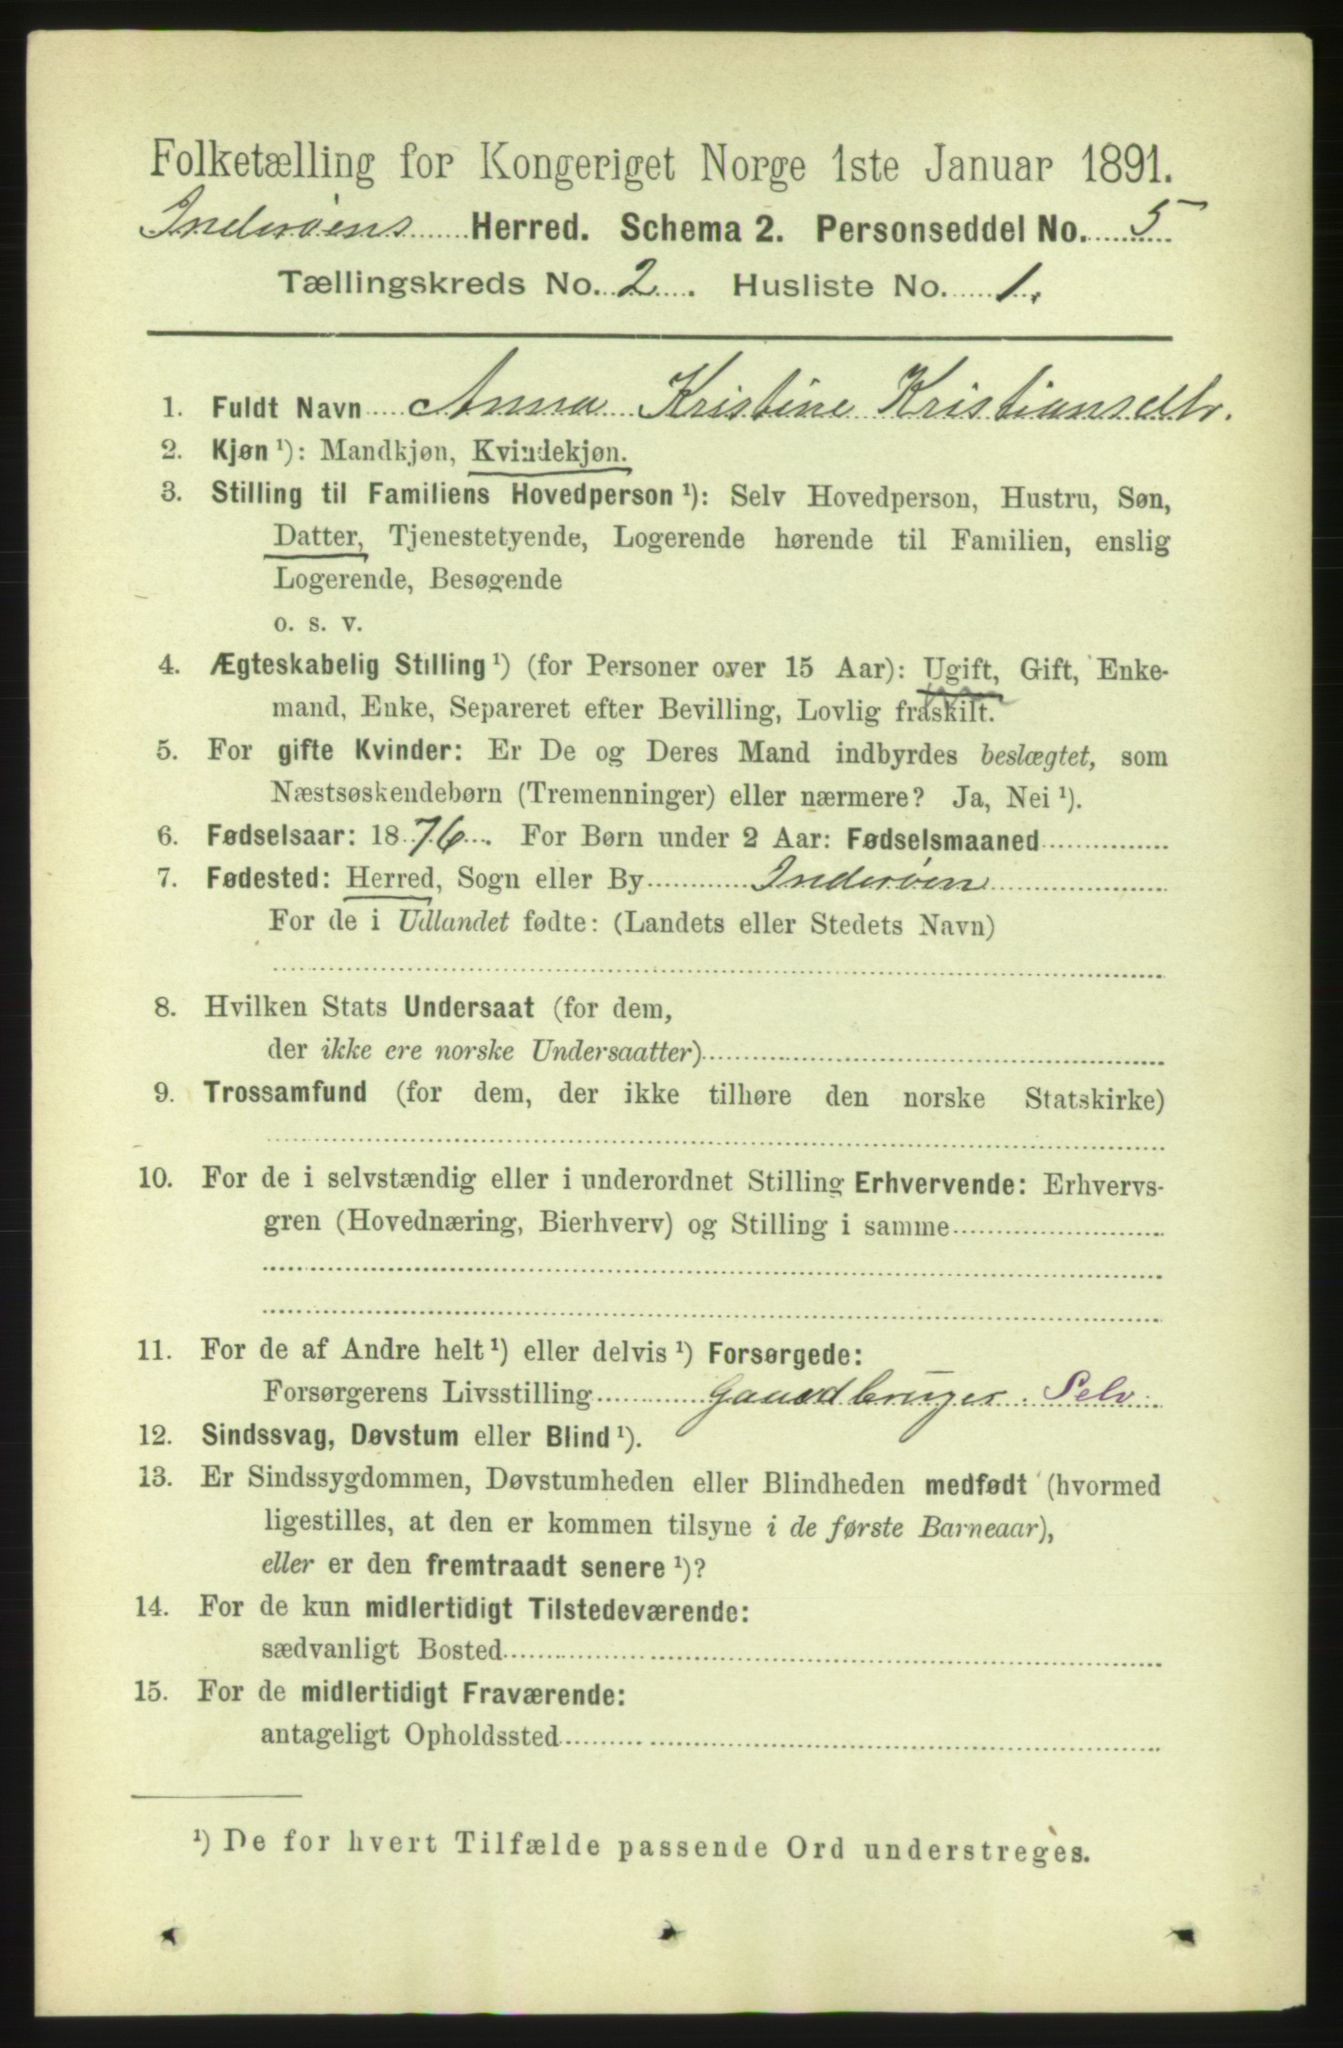 Folketælling for Kongeriget Norge 1ste Januar 1891.
Inderøens Herred. Schema 2. Personseddel No. 5
Tællingskreds No. 2. Husliste No. 1.
1. Fuldt Navn Anna Kristine Kristiansdtr.
2. Kjøn ¹): Mandkjøn, Kvindekjøn.
3. Stilling til Familiens Hovedperson ¹): Selv Hovedperson, Hustru, Søn,
Datter, Tjenestetyende, Logerende hørende til Familien, enslig
Logerende, Besøgende
o. s. v.
4. Ægteskabelig Stilling ¹) (for Personer over 15 Aar): Ugift, Gift, Enke-
mand, Enke, Separeret efter Bevilling, Lovlig fraskilt.
5. For gifte Kvinder: Er De og Deres Mand indbyrdes beslægtet, som
Næstsøskendebørn (Tremenninger) eller nærmere? Ja, Nei ¹).
6. Fødselsaar: 1876. For Børn under 2 Aar: Fødselsmaaned
7. Fødested: Herred, Sogn eller By Inderøen
For de i Udlandet fødte: (Landets eller Stedets Navn)
8. Hvilken Stats Undersaat (for dem,
der ikke ere norske Undersaatter)
9. Trossamfund (for dem, der ikke tilhøre den norske Statskirke)
10. For de i selvstændig eller i underordnet Stilling Erhvervende: Erhvervs-
gren (Hovednæring, Bierhverv) og Stilling i samme
11. For de af Andre helt ¹) eller delvis ¹) Forsørgede:
Forsørgerens Livsstilling Gaardbruger. Selv.
12. Sindssvag, Døvstum eller Blind ¹).
13. Er Sindssygdommen, Døvstumheden eller Blindheden medfødt (hvormed
ligestilles, at den er kommen tilsyne i de første Barneaar),
eller er den fremtraadt senere ¹)?
14. For de kun midlertidigt Tilstedeværende:
sædvanligt Bosted
15. For de midlertidigt Fraværende:
antageligt Opholdssted
¹) De for hvert Tilfælde passende Ord understreges.